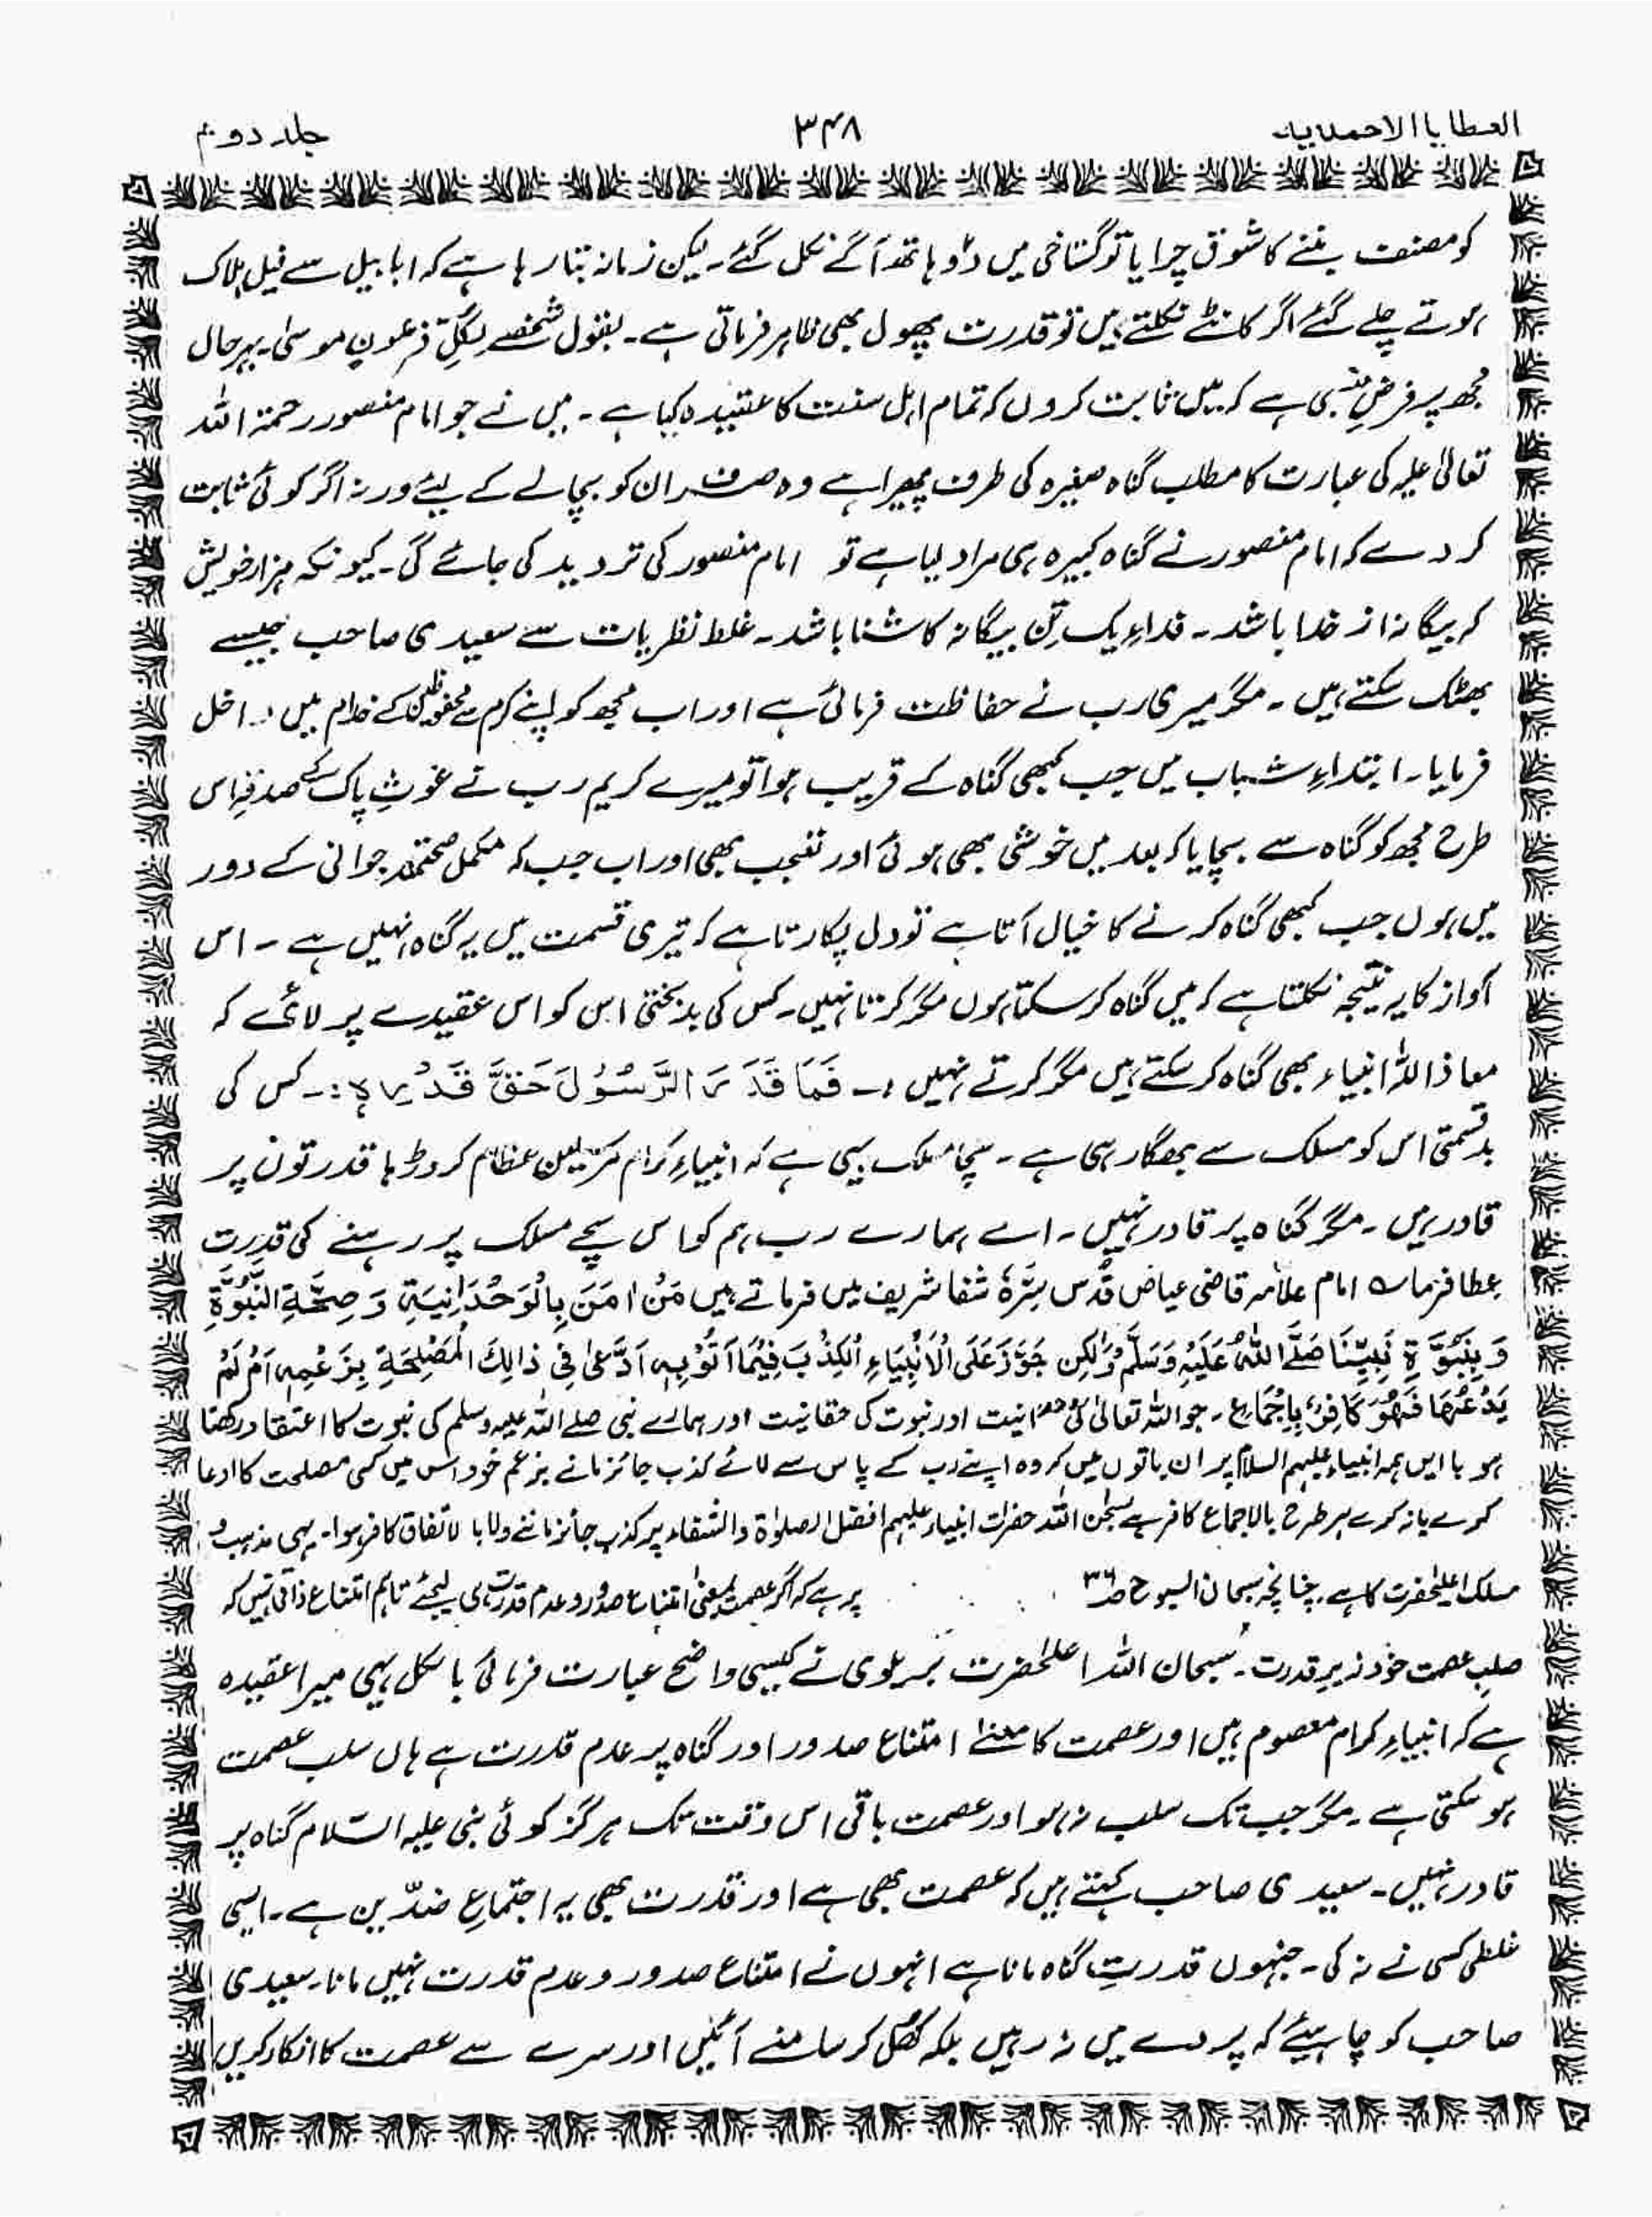 العطایا الاحمدیہ ۳۴۸ جلد دوم
کو مصنف بننے کا شوق چرایا تو گستاخی میں دو ہاتھ آگے نکل گئے۔ لیکن زمانہ بتا رہا ہے کہ ابابیل سے فیل ہلاک
ہوتے چلے گئے اگر کانٹے نکلتے ہیں تو قدرت پھول بھی ظاہر فرماتی ہے۔ بقول شخصے لِکُلِّ فرعونٍ موسیٰ۔ بہرحال
مجھ پر فرضِ منصبی ہے کہ میں ثابت کروں کہ تمام اہل سنت کا عقیدہ کیا ہے۔ میں نے جو امام منصور رحمۃ اللہ
تعالیٰ علیہ کی عبارت کا مطلب گناہ صغیرہ کی طرف پھیرا ہے وہ صرف ان کو بچانے کے لیئے ورنہ اگر کوئی ثابت
کر دے کہ امام منصور نے گناہ کبیرہ ہی مراد لیا ہے تو امام منصور کی تردید کی جائے گی۔ کیونکہ ہزار خویش
کہ بیگانہ از خدا باشد۔ فداءِ یک تن بیگانہ کاشنا باشد۔ غلط نظریات سے سعیدی صاحب جیسے
بھٹک سکتے ہیں۔ مگر میری رب نے حفاظت فرمائی ہے اور اب مجھ کو اپنے کرم سے محفوظین کے خدام میں داخل
فرمایا۔ ابتداءِ شباب میں جب کبھی گناہ کے قریب ہوا تو میرے کریم رب نے غوثِ پاک کے صدقہ اس
طرح مجھ کو گناہ سے بچایا کہ بعد میں خوشی بھی ہوئی اور تعجب بھی اور اب جب کہ مکمل صحتمند جوانی کے دور
میں ہوں جب کبھی گناہ کرنے کا خیال آتا ہے تو دل پکارتا ہے کہ تیری قسمت میں یہ گناہ نہیں ہے۔ اس
آواز کا یہ نتیجہ نکلتا ہے کہ میں گناہ کر سکتا ہوں مگر کرتا نہیں۔ کس کی بدبختی اس کو اس عقیدے پر لائے کہ
معاذ اللہ انبیاء بھی گناہ کر سکتے ہیں مگر کرتے نہیں :۔ فَمَا قَدَرَ الرَّسُوْلَ حَقَّ قَدْرِہٖ:۔ کس کی
بدقسمتی اس کو مسلک سے بھگا رہی ہے۔ سچا مسلک یہی ہے کہ انبیاءِ کرام مرسلین عظام کروڑ ہا قدرتوں پر
قادر ہیں۔ مگر گناہ پر قادر نہیں۔ اے ہمارے رب ہم کو اس سچے مسلک پر رہنے کی قدرت
عطا فرما۔ امام علامہ قاضی عیاض قدس سرہٗ شفا شریف میں فرماتے ہیں مَنْ اٰمَنَ بِالْوَحْدَانِیَۃِ وَ صِحَّۃِ النُّبُوَّۃِ
وَ بِنُبُوَّۃِ نَبِیِّنَا صَلَّی اللّٰہُ عَلَیْہِ وَسَلَّمَ وَلٰکِن جَوَّزَ عَلَی الْاَنْبِیَاءِ الْکِذْبَ فِیْمَا اَتَوْ بِہٖ اَدَّعیٰ فِی ذَالِکَ الْمَصْلِحَۃِ بِزَعْمِہٖ اَمْ لَمْ
یَدْعُھَا فَھُوَ کَافِرٌ بِاِجْمَاعٍ۔ جو اللہ تعالیٰ کی وحدانیت اور نبوت کی حقانیت اور ہمارے نبی صلے اللہ علیہ وسلم کی نبوت کا اعتقاد رکھتا
ہو با ایں ہمہ انبیاء علیہم السلام پر ان باتوں میں کہ وہ اپنے رب کے پاس سے لائے کذب جائز مانے بزعم خود اس میں کسی مصلحت کا ادعا
کرے یا نہ کرے ہر طرح بالاجماع کافر ہے سبحٰن اللہ حضرات انبیاء علیہم افضل الصلوٰۃ والثناء پر کذب جائز ماننے والا بالاتفاق کافر ہوا۔ یہی مذہب و
مسلک اعلیٰحضرت کا ہے۔ چنانچہ سبحان السبوح ص۳۶ پر ہے کہ اگر عصمت بمعنیٰ امتناع صدور و عدم قدرت ہی لیجئے تاہم امتناع ذاتی نہیں کہ
صلبِ عصمت خود زیرِ قدرت۔ سبحان اللہ اعلحضرت بریلوی نے کیسی واضح عبارت فرمائی بالکل یہی میرا عقیدہ
ہے کہ انبیاءِ کرام معصوم ہیں اور عصمت کا معنےٰ امتناع صدور اور گناہ پر عدم قدرت ہے ہاں سلب عصمت
ہو سکتی ہے۔ مگر جب تک سلب نہ ہو اور عصمت باقی اس وقت تک ہرگز کوئی نبی علیہ السّلام گناہ پر
قادر نہیں۔ سعیدی صاحب کہتے ہیں کہ عصمت بھی ہے اور قدرت بھی یہ اجتماعِ ضدّین ہے۔ ایسی
غلطی کسی نے نہ کی۔ جنہوں قدرتِ گناہ مانا ہے انہوں نے امتناع صدور و عدم قدرت نہیں مانا۔ سعیدی
صاحب کو چاہیئے کہ پردے میں نہ رہیں بلکہ کھل کر سامنے آئیں اور سرے سے عصمت کا انکار کریں